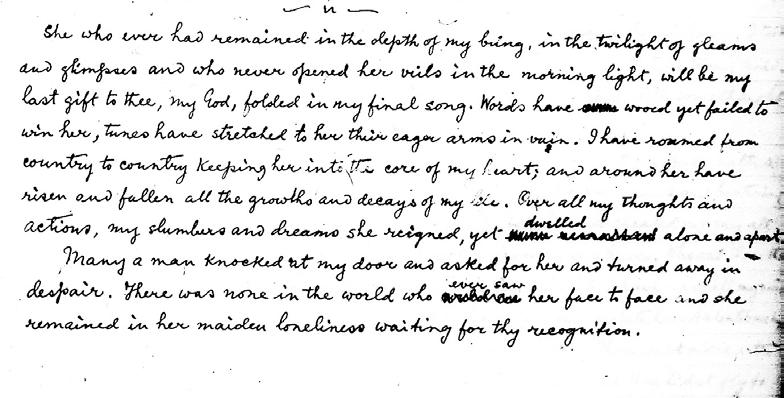 She who ever had remained in the depth of my being, in the twilight of gleams
and glimpses and who never opened her veils in the morning light, will be my
last gift to thee, my God, folded in my final song. Words have wooed yet failed to
win her, tunes have stretched to her their eager arms in vain. I have roamed from
country to country keeping her into the core of my heart; and around her have
risen and fallen all the growths and decays of my life. Over all my thoughts and
actions, my slumbers and dreams she reigned, yet dwelled alone and apart.
Many a man knocked at my door and asked for her and turned away in
despair. There was none in the world who ever saw her face to face and she
remained in her maiden loneliness waiting for thy recognition.